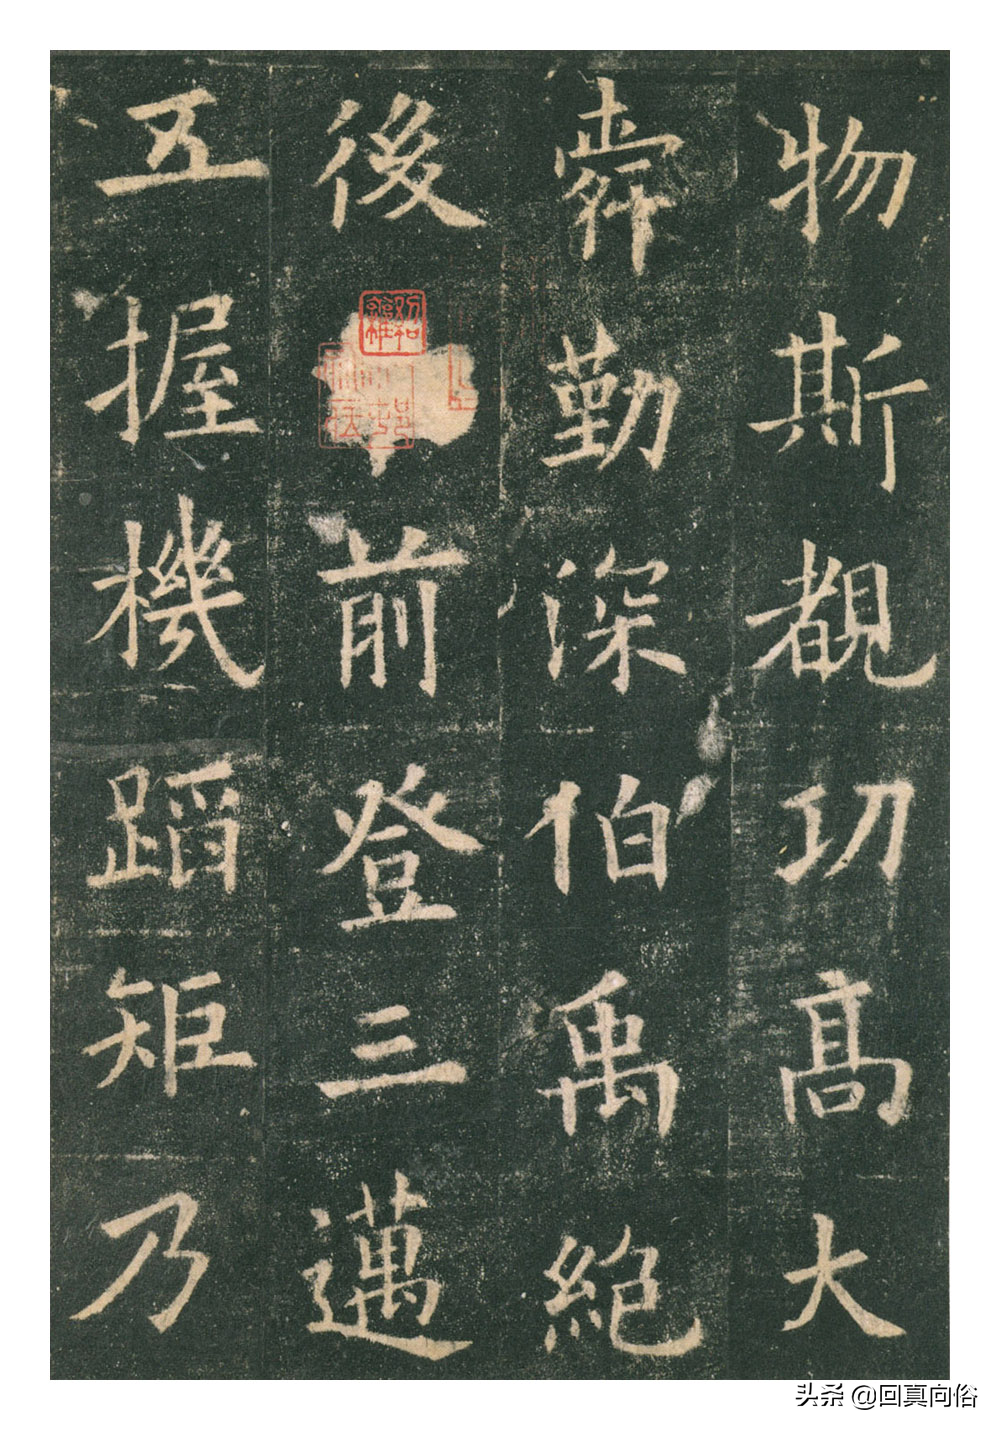 物斯覩功髙大
舜勤深伯禹絶
後前登三邁
五握機蹈矩乃
头条 @回真向俗